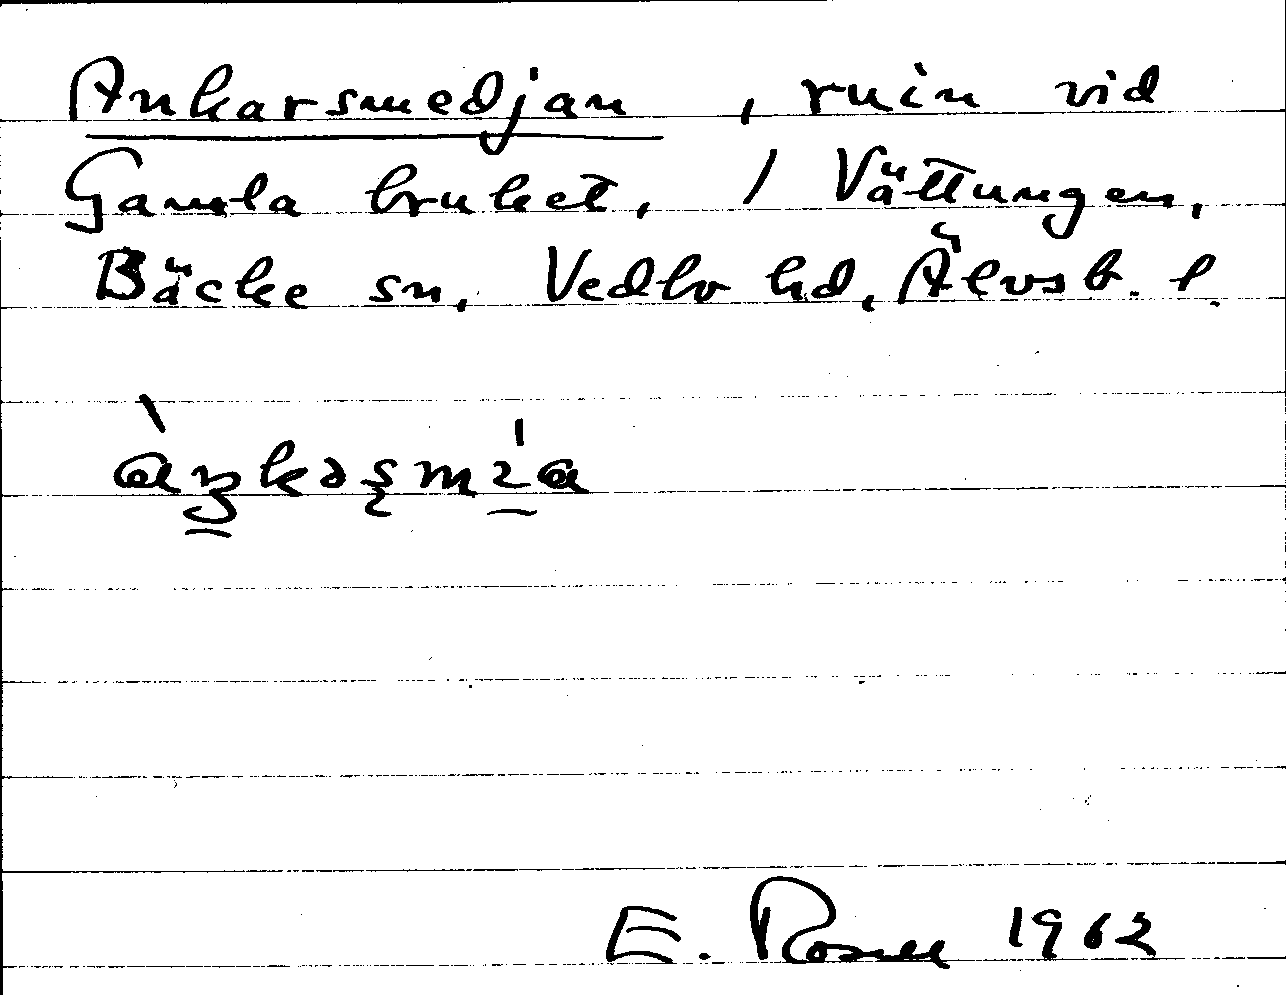 Ankarsmedjan, ruin vid
Gamla bruket, / Vättungen,
Bäcke sn, Vedbo hd, Älvsb. l.
E. Rosell 1962